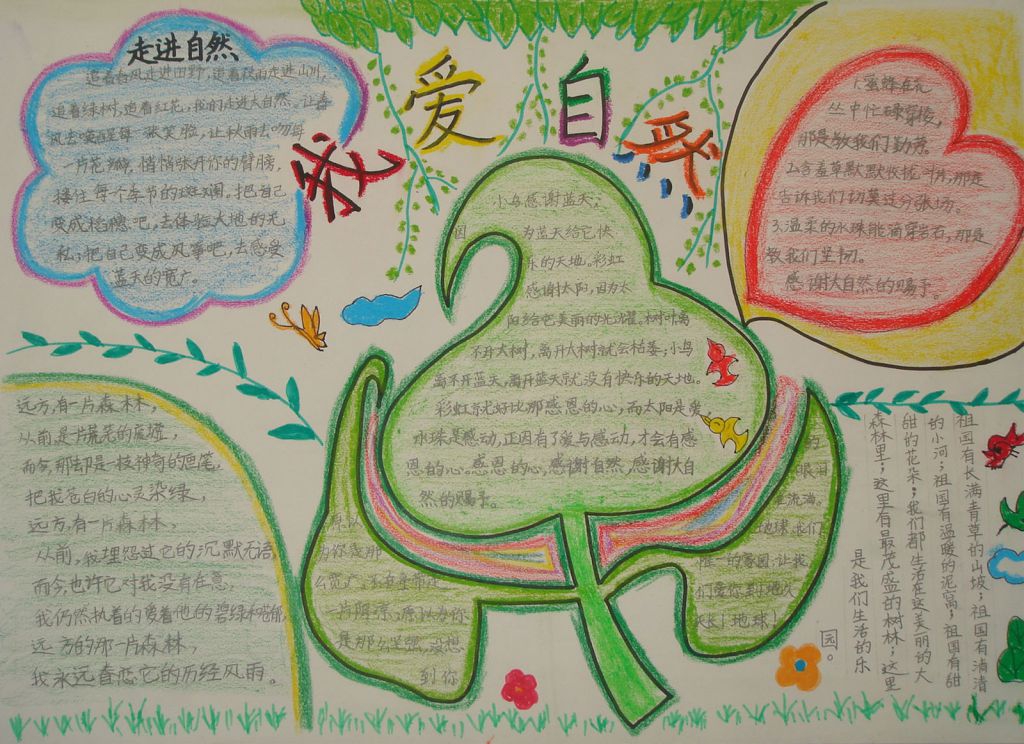 我爱自然
走进自然
追着春风走进田野,追着秋雨走进山川,
追着绿树,追着红花,我们走进大自然。让春
风去唤醒每一张笑脸,让秋雨去吻每
一片花瓣,悄悄张开你的臂膀,
搂住每个季节的斑斓。把自己
变成杨穗吧,去体验大地的无
私;把自己变成风筝吧,去感受
蓝天的宽广。
小鸟感谢蓝天,
因 为蓝天给它快
乐的天地。彩虹
感谢太阳,因为太
阳给它美丽的光耀。树叶离
不开大树,离开大树就会枯萎;小鸟
离不开蓝天,离开蓝天就没有快乐的天地。
彩虹就好比那感恩的心,而太阳是爱
水珠是感动,正因有了爱与感动,才会有感
恩的心。感恩的心,感谢自然,感谢大自
然的赐予。
1.蜜蜂在花
丛中忙碌穿梭,
那是教我们勤劳。
2.含羞草默默收拢叶片,那是
告诉我们切莫过分张扬。
3.温柔的水珠能滴穿岩石,那是
教我们坚韧。
感谢大自然的赐予。
远方,有一片森林,
从前,是一片荒芜的废墟,
而今,那却是一枝神奇的画笔,
把我苍白的心灵染绿,
远方,有一片森林,
从前,我埋怨过它的沉默无语
而今,也许它对我没有在意,
我仍然执着的爱着他的碧绿和苍郁
远方的那一片森林,
我永远眷恋它的历经风雨。
为你是那
么宽广
一片阴凉,原以为你
是那么坚强,没想
到你
的
眼泪
流淌。
地球,我们
唯一的家园,让我
们爱你,到地久
天长!地球!
祖国有长满青草的山坡;祖国有清清
的小河;祖国有温暖的泥窝;祖国有甜
甜的花朵;我们都生活在这美丽的大
森林里;这里有最茂盛的树林;这里
是我们生活的乐
园。